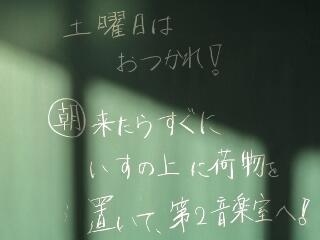 土曜日は
おつかれ！
朝 来たらすぐに
いすの上に荷物を
置いて、第2音楽室へ！